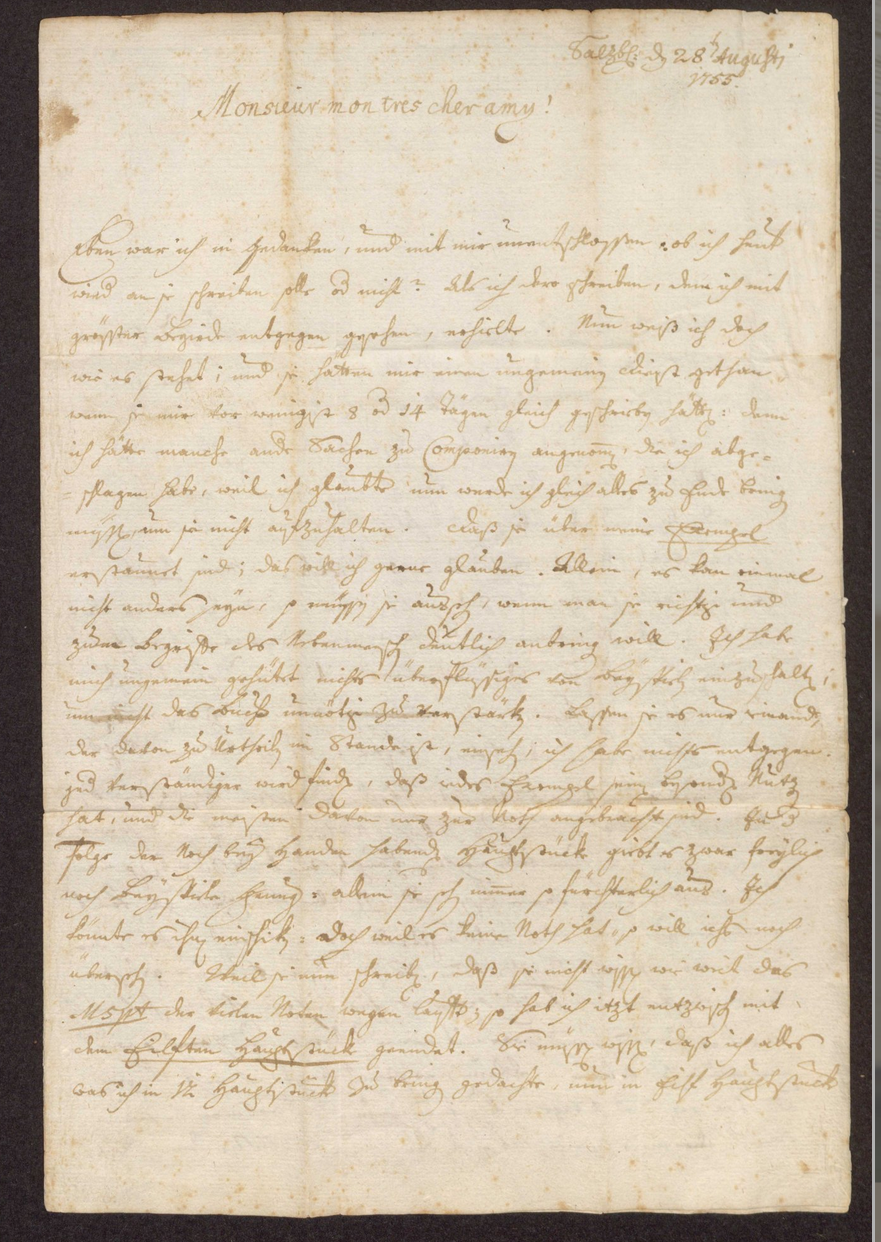 Salzb: den 28t Augusti
1755.
Monsieur mon tres cher amy!
Eben war ich in gedanken, und mit mir unentschlossen: ob ich heut
wied an sie schreiben solle od nicht? Als ich dero schreiben, dem ich mit
größter Begierde entgegen gesehen, erhielte. Nun weiß ich doch
wie es stehet; und sie hätten mir einen ungemeinen dienst gethan
wenn sie mir vor wenigst 8 od 14 Tägen gleich geschrieben hätten: denn
ich hätte manche ande Sachen zu Componieren angenommen, die ich abge=
=schlagen habe, weil ich glaubte nun werde ich gleich alles zu Ende bringen
müssen, um sie nicht aufzuhalten. daß sie über meine Exempel
erstaunet sind; das will ich gerne glauben. Allein, es kan einmal
nicht anders seyn, so müssen sie aussehen, wenn man sie richtig und
zum Begriffe des Nebenmenschen deutlich anbringen will. Ich habe
mich ungemein gehütet nichts überflüssiges von Beyspielen einzuschalten,
um nicht das Buch unnötig zu verstärken. Lassen sie es nur iemanden,
der davon zu Urtheilen im Stande ist, einsehen; ich habe nichts entgegen.
jed verständiger wird finden, daß iedes Exempel seinen besonden Nutzen
hat, und die meisten davon nur zur Noth angebracht sind. In
folge der Noch bey Handen habenden Hauptstücke giebt es zwar freylich
noch Beyspiele genug: allein sie sehen nimmer so fürchterlich aus. Ich
könnte es ihnen einschicken: doch weil es keine Noth hat, so will ichs noch
übersehen. Weil sie nun schreiben, daß sie nicht wissen wie weit das
Mspt der vielen Noten wegen lauffe; so hab ich itzt entzwischen mit
dem Eilften Hauptstück geendet. Sie müssen wissen, daß ich alles
was ich in 12 Hauptstück zu bringen gedachte, nun in Eilf Hauptstück